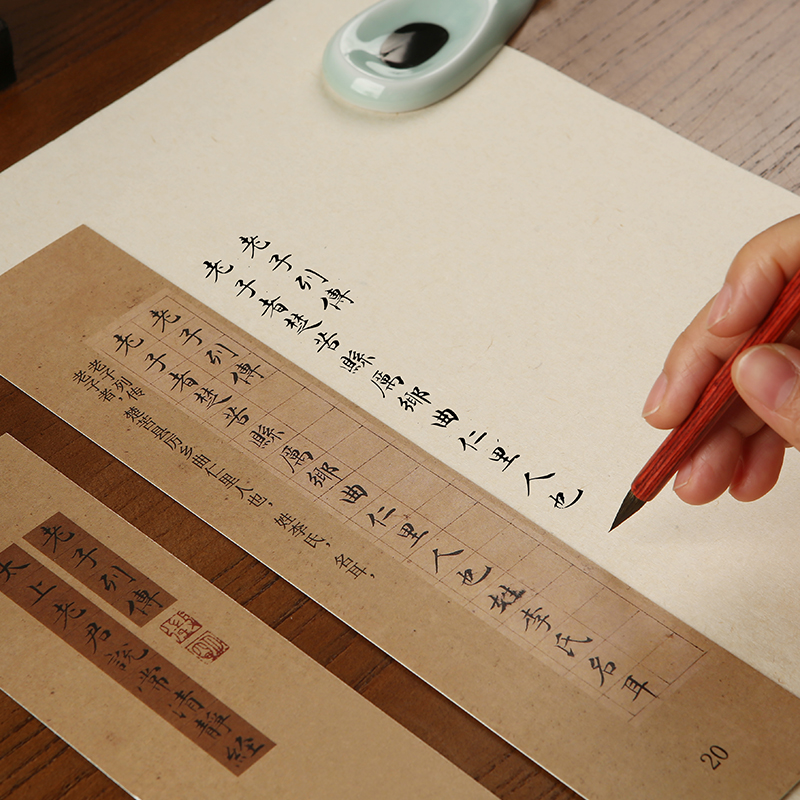 老子列傳
老子者楚苦縣厲鄉曲仁里人也
老子列傳
老子者楚苦縣厲鄉曲仁里人也姓李氏名耳
老子列传
老子者，楚苦县厉乡曲仁里人也，姓李氏，名耳，
20
老子列傳
太上老君說常清靜經